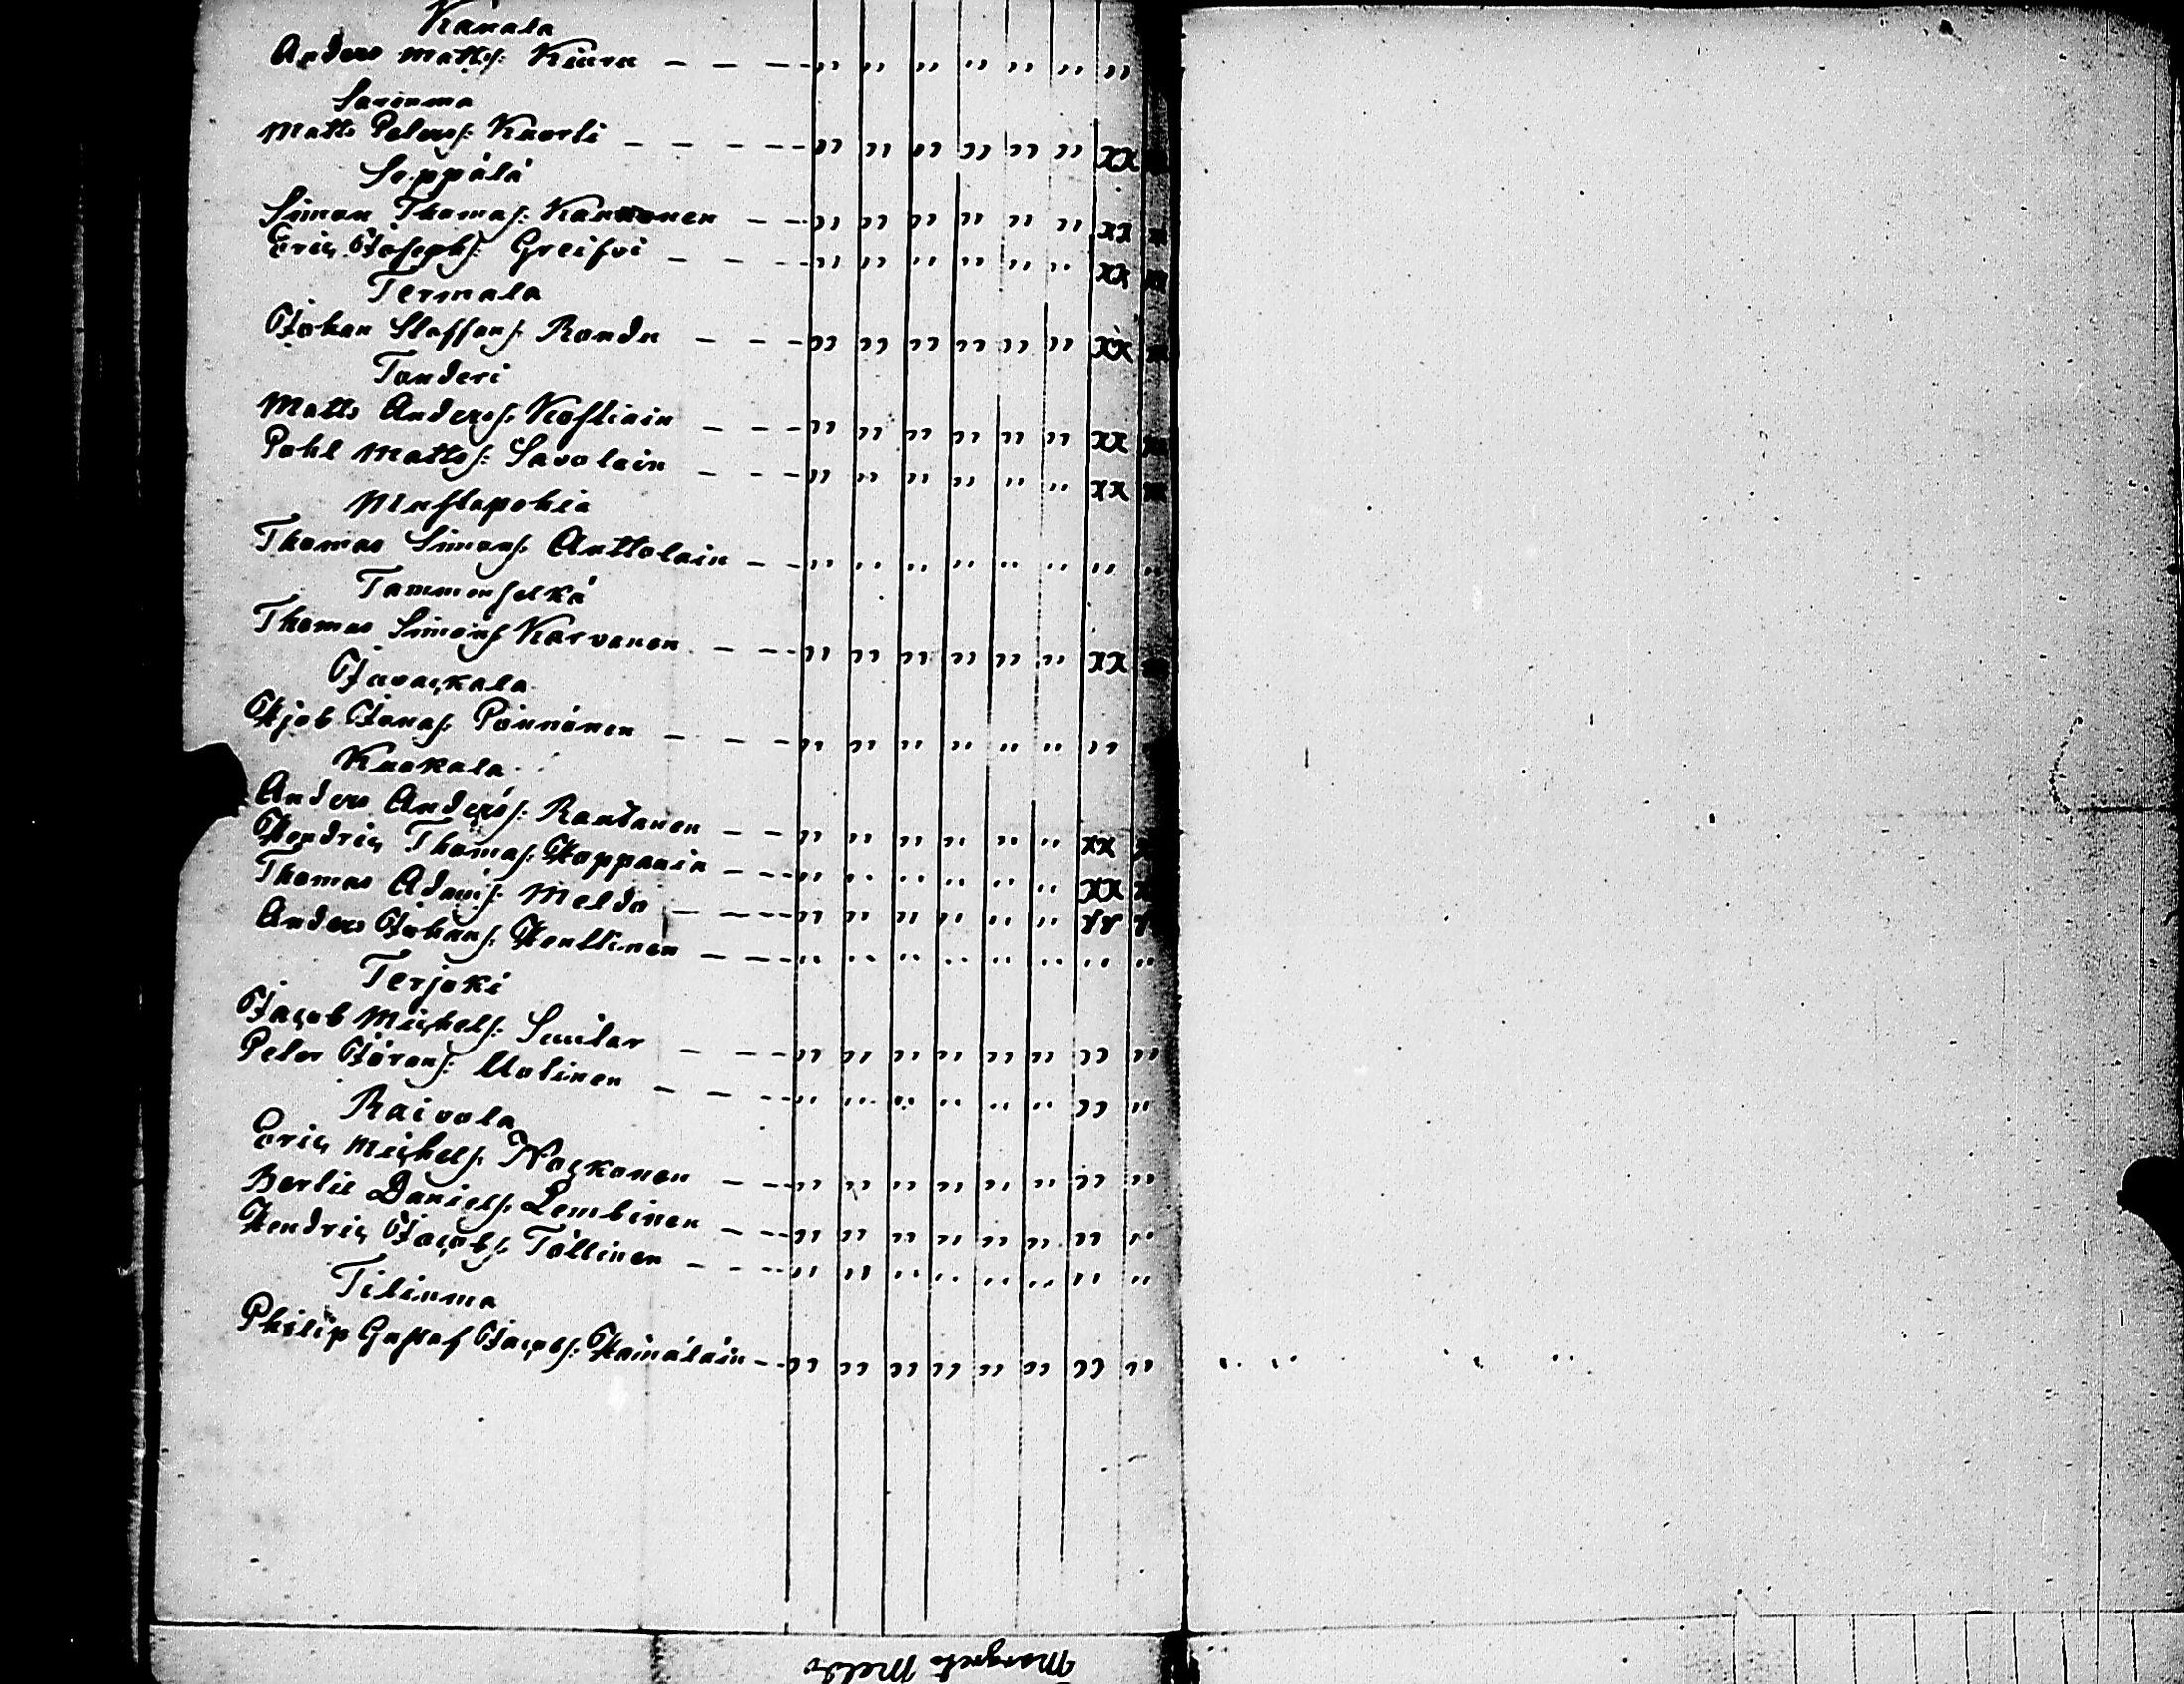 Kanala
Anders Matts: Kiuru — — — " " " " " " "
Sarinma
Matts Peters: Kuorti — — — — " " " " " " xx
Seppälä
Simon Thomas: Kankonen — — " " " " " " xx
Eric Josephs: Greifvi — — — " " " " " " xx
Termala
Johan Staffans: Rondu — — — " " " " " " xx
Tonderi
Matts Anders: Kostiain — — — " " " " " " xx
Pohl Matts: Savolain — — — " " " " " " xx
Mustapohia
Thomas Simons: Anttolain — — " " " " " " " "
Tammenselkä
Thomas Simons Karvonen — — — " " " " " " xx
Javackala
Hjob Jonas: Pönnönen — — — " " " " " " "
Kuokala
Anders Anders: Rantanen — — — " " " " " " xx
Hendric Thomas: Happanin — — — " " " " " " xx
Thomas Adams: Meldo — — — " " " " " " xx
Anders Johans: Henttinen — — — " " " " " " " "
Terjoki
Jacob Michels: Smitar — — — " " " " " " " "
Peter Görans: Uotinen — — — " " " " " " " "
Raivola
Eric Michels: Nockonen — — — " " " " " " " "
Bertil Daniels: Lembinen — — — " " " " " " " "
Hendric Jacobs: Töllinen — — — " " " " " " " "
Tilinma
Philip Gustaf Jacobs: Hämäläin — — " " " " " " " "
Margreta Meldo